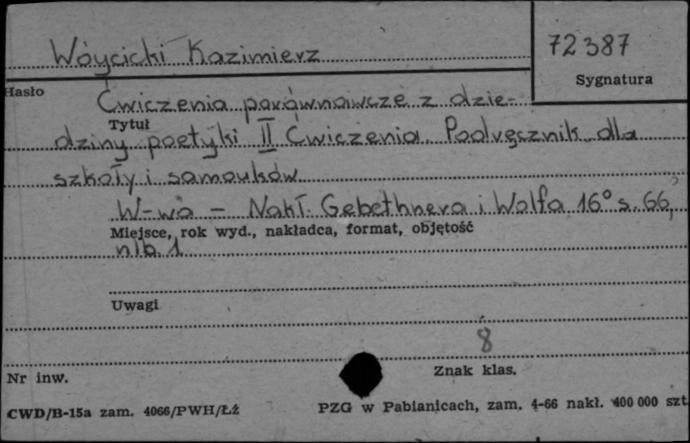 Wóycicki Kazimierz
72387
Sygnatura
Hasło
Ćwiczenia porównawcze z dzie-
Tytuł
dziny poetyki II Ćwiczenia. Podręcznik dla
szkoły i samouków
W-wa - Nakł. Gebethnera i Wolfa 16° s. 66,
Miejsce, rok wyd., nakładca, format, objętość
nlb. 1
Uwagi
8
Nr inw.
Znak klas.
CWD/B-15a zam. 4066/PWH/Łż
PZG w Pabianicach, zam. 4-66 nakł. 400 000 szt